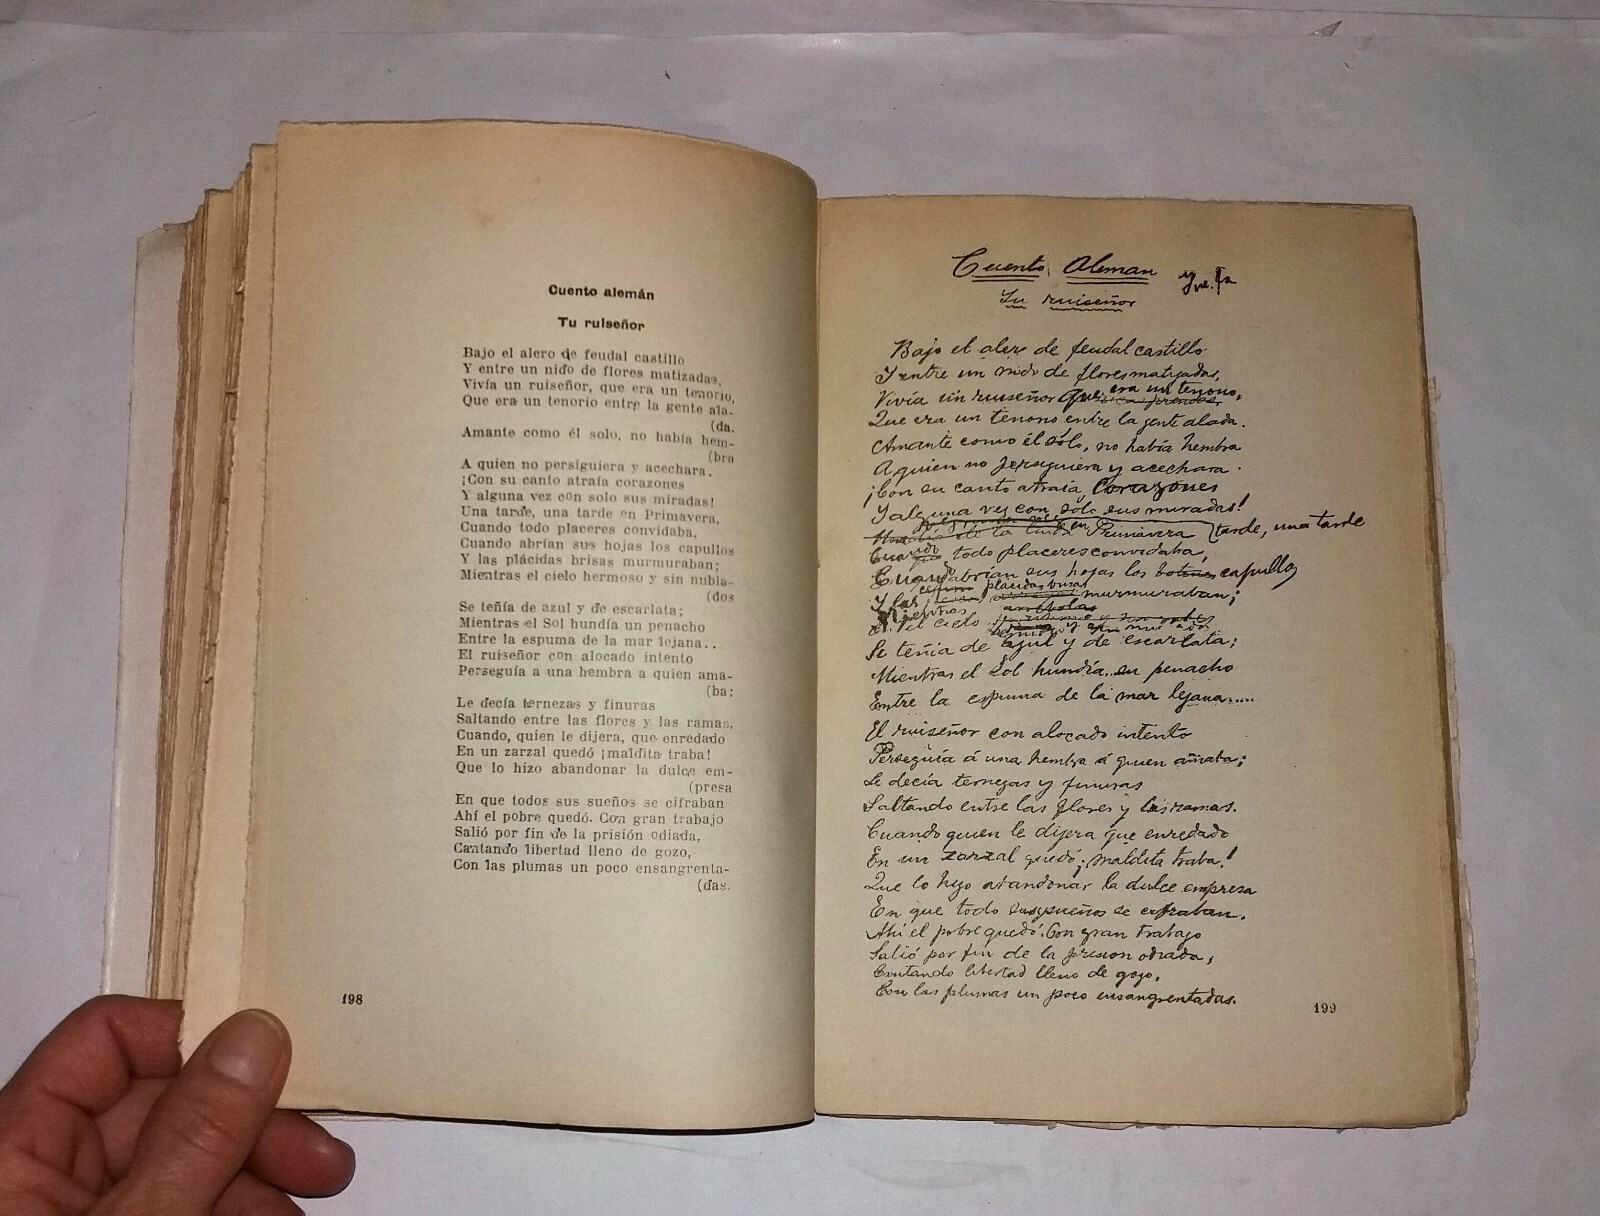 Cuento alemán
Tu ruiseñor
Bajo el alero de feudal castillo
Y entre un nido de flores matizadas,
Vivía un ruiseñor, que era un tenorio,
Que era un tenorio entre la gente ala-
(da.
Amante como él solo, no había hem-
(bra
A quien no persiguiera y acechara.
¡Con su canto atraía corazones
Y alguna vez con solo sus miradas!
Una tarde, una tarde en Primavera,
Cuando todo placeres convidaba,
Cuando abrían sus hojas los capullos
Y las plácidas brisas murmuraban;
Mientras el cielo hermoso y sin nubla-
(dos
Se teñía de azul y de escarlata;
Mientras el Sol hundía un penacho
Entre la espuma de la mar lejana...
El ruiseñor con alocado intento
Perseguía a una hembra a quien ama-
(ba;
Le decía ternezas y finuras
Saltando entre las flores y las ramas,
Cuando, quien le dijera, que enredado
En un zarzal quedó ¡maldita traba!
Que lo hizo abandonar la dulce em-
(presa
En que todos sus sueños se cifraban
Ahí el pobre quedó. Con gran trabajo
Salió por fin de la prisión odiada,
Cantando libertad lleno de gozo,
Con las plumas un poco ensangrenta-
(das.
198
Cuento Aleman
Tu ruiseñor
Bajo el alero de feudal castillo
Y entre un nido de flores matizadas,
Vivía un ruiseñor que era un tenorio,
Que era un tenorio entre la gente alada.
Amante como él sólo, no había hembra
A quien no perseguiera y acechara.
¡Con su canto atraía corazones
Y alguna vez con sólo sus miradas!
en Primavera (tarde, una tarde
Cuando todo placeres convidaba,
Cuando abrían sus hojas los botones capullos
Y las placidas brisas murmuraban;
Mientras el cielo
Se teñía de azul y de escarlata;
Mientras el Sol hundía su penacho
Entre la espuma de la mar lejana.....
El ruiseñor con alocado intento
Perseguía á una hembra á quien amaba;
Le decía ternezas y finuras
Saltando entre las flores y las ramas.
Cuando quien le dijera que enredado
En un zarzal quedó ¡maldita traba!
Que lo hizo abandonar la dulce empresa
En que todo sus sueños se cifraban.
Ahí el pobre quedó. Con gran trabajo
Salió por fin de la prision odiada,
Cantando libertad lleno de gozo,
Con las plumas un poco ensangrentadas.
199